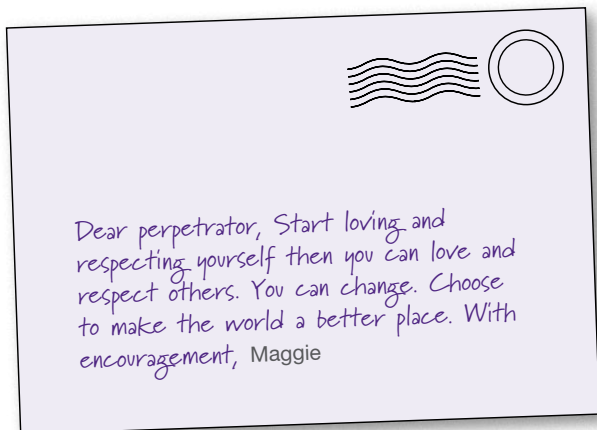 Dear perpetrator, Start loving and
respecting yourself then you can love and
respect others. You can change. Choose
to make the world a better place. With
encouragement, Maggie